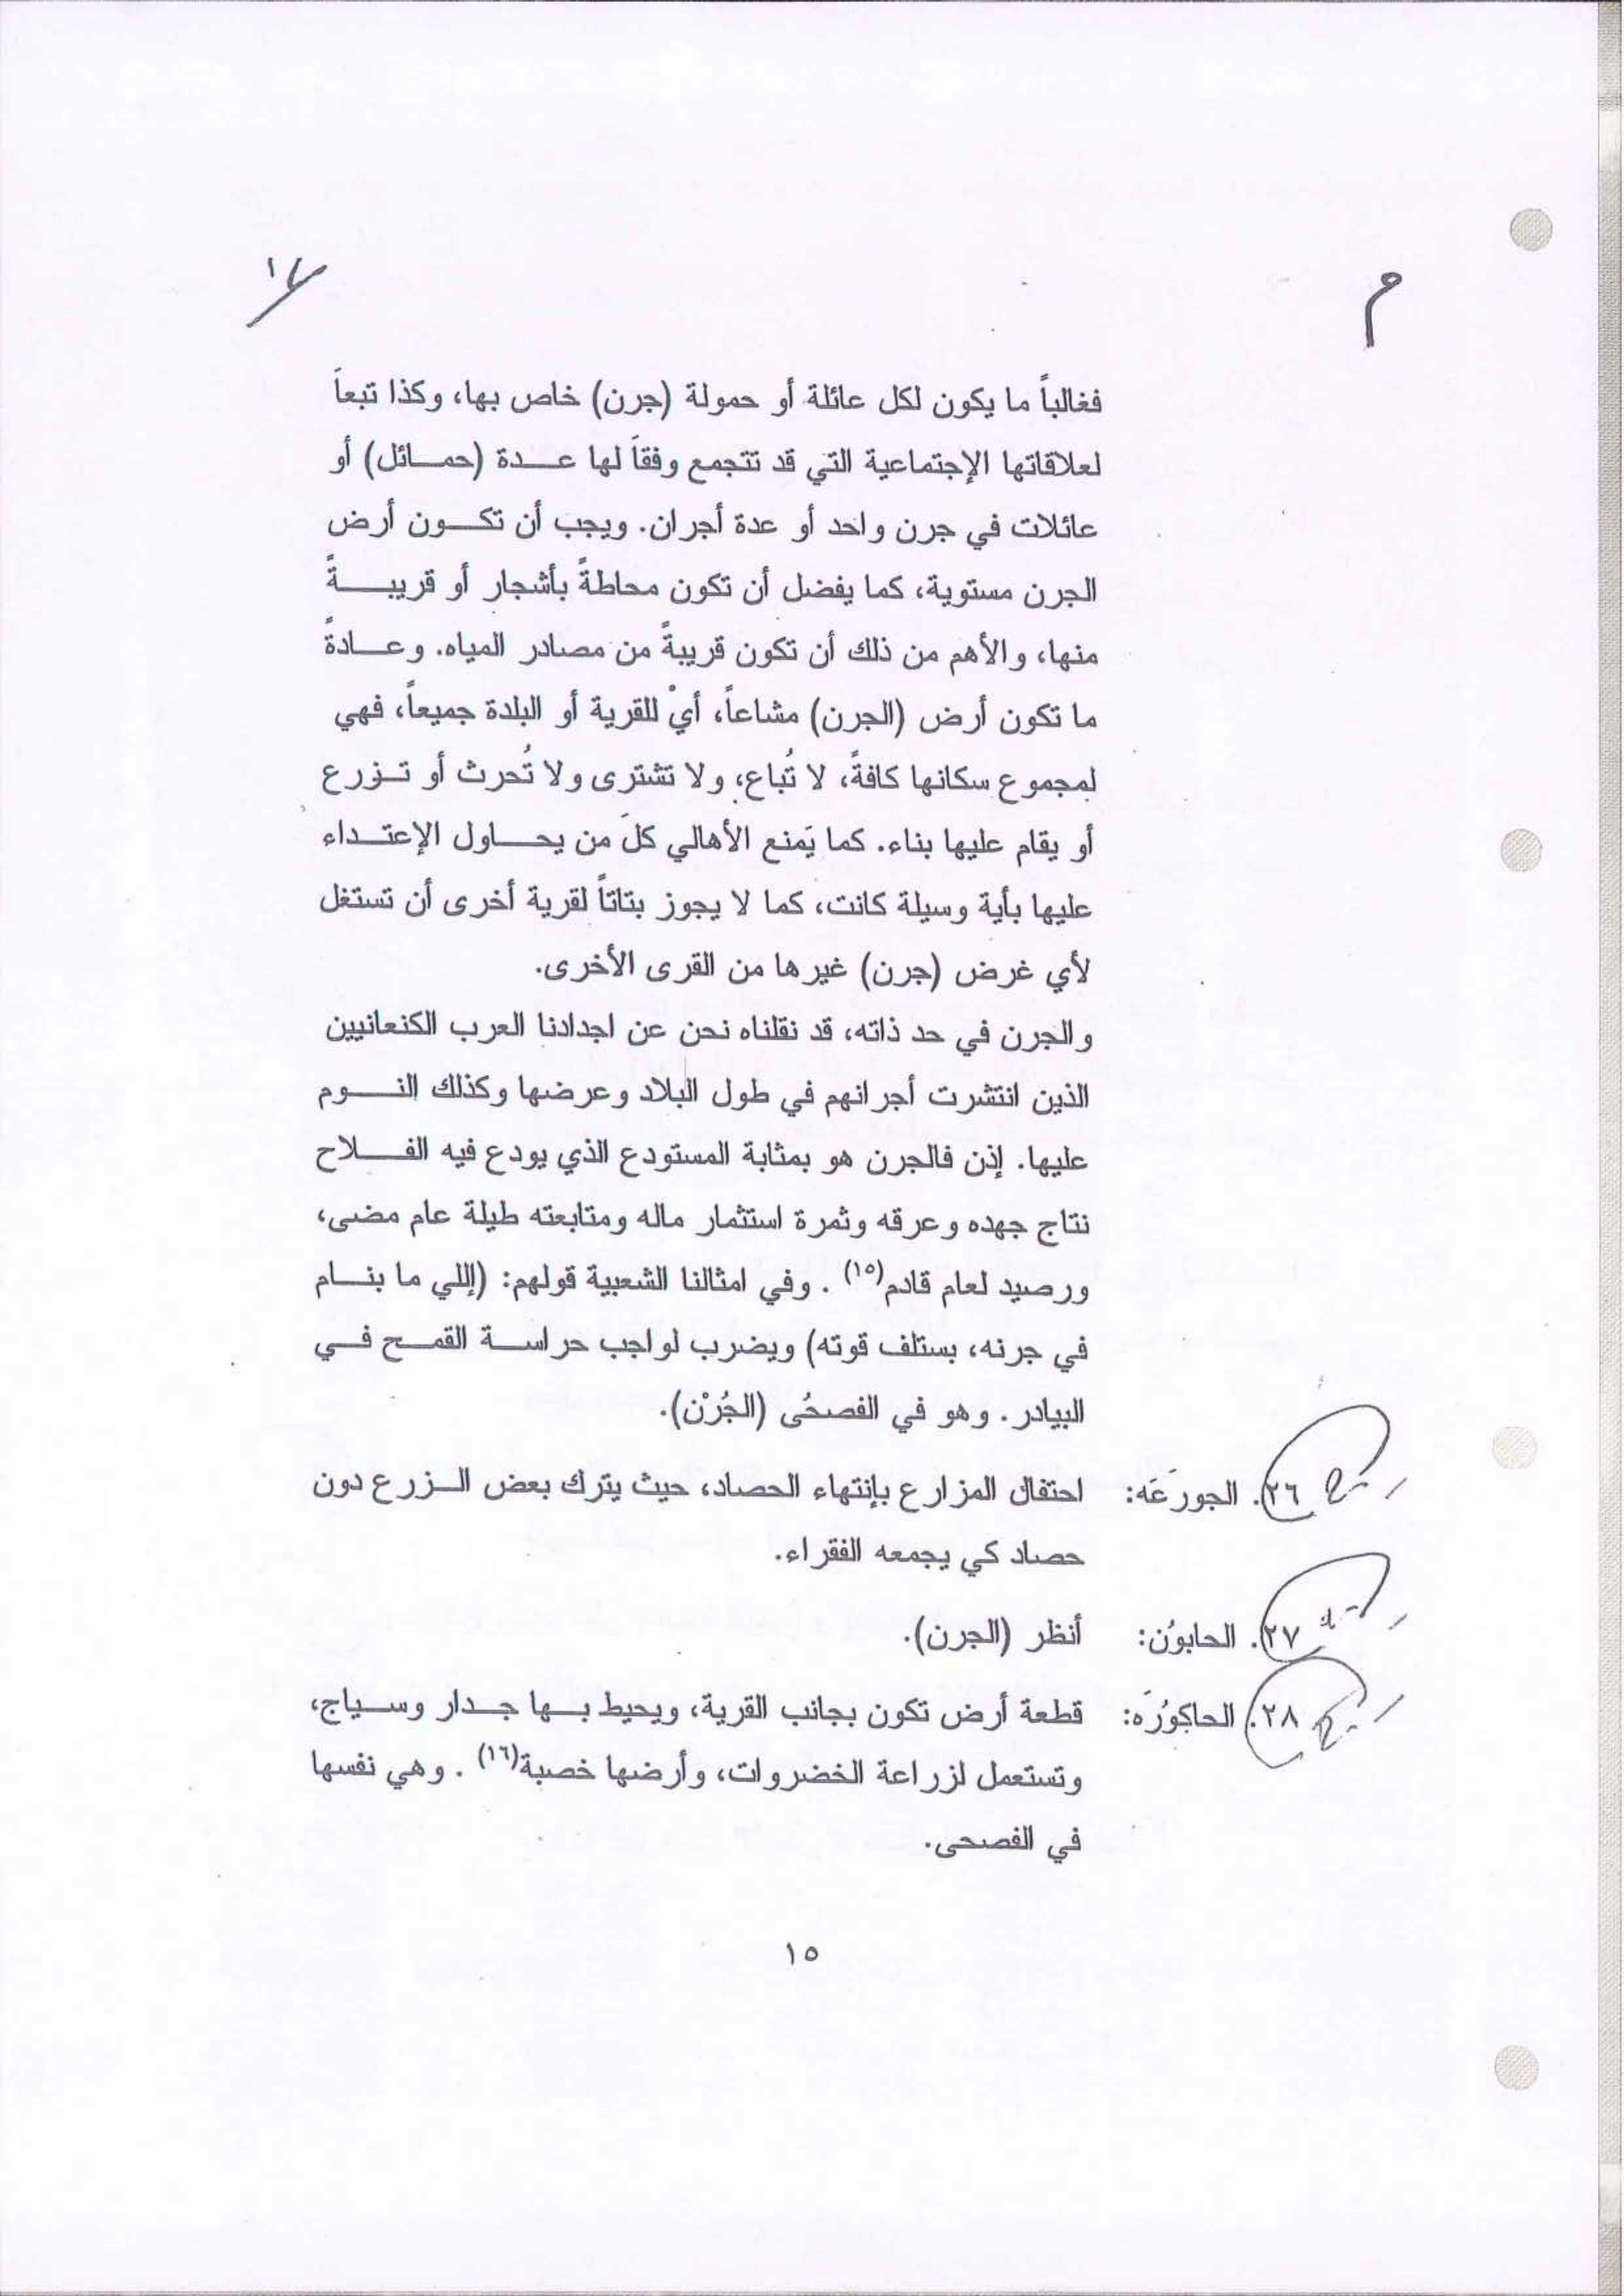 م
١٧
فغالباً ما يكون لكل عائلة أو حمولة (جرن) خاص بها، وكذا تبعاً
لعلاقاتها الإجتماعية التي قد تتجمع وفقاً لها عدة (حمائل) أو
عائلات في جرن واحد أو عدة أجران. ويجب أن تكون أرض
الجرن مستوية، كما يفضل أن تكون محاطةً بأشجار أو قريبةً
منها، والأهم من ذلك أن تكون قريبةً من مصادر المياه. وعادةً
ما تكون أرض (الجرن) مشاعاً، أيْ للقرية أو البلدة جميعاً، فهي
لمجموع سكانها كافةً، لا تُباع، ولا تشترى ولا تُحرث أو تزرع
أو يقام عليها بناء. كما يَمنع الأهالي كلَ من يحاول الإعتداء
عليها بأية وسيلة كانت، كما لا يجوز بتاتاً لقرية أخرى أن تستغل
لأي غرض (جرن) غيرها من القرى الأخرى.
والجرن في حد ذاته، قد نقلناه نحن عن اجدادنا العرب الكنعانيين
الذين انتشرت أجرانهم في طول البلاد وعرضها وكذلك النوم
عليها. إذن فالجرن هو بمثابة المستودع الذي يودع فيه الفلاح
نتاج جهده وعرقه وثمرة استثمار ماله ومتابعته طيلة عام مضى،
ورصيد لعام قادم(١٥) . وفي امثالنا الشعبية قولهم: (إللي ما بنام
في جرنه، بستلف قوته) ويضرب لواجب حراسة القمح في
البيادر. وهو في الفصحُى (الجُرْن).
٢٦. الجورَعَه: احتفال المزارع بإنتهاء الحصاد، حيث يترك بعض الزرع دون
حصاد كي يجمعه الفقراء.
٢٧. الحابوُن: أنظر (الجرن).
٢٨. الحاكِوُرَه: قطعة أرض تكون بجانب القرية، ويحيط بها جدار وسياج،
وتستعمل لزراعة الخضروات، وأرضها خصبة(١٦) . وهي نفسها
في الفصحى.
١٥